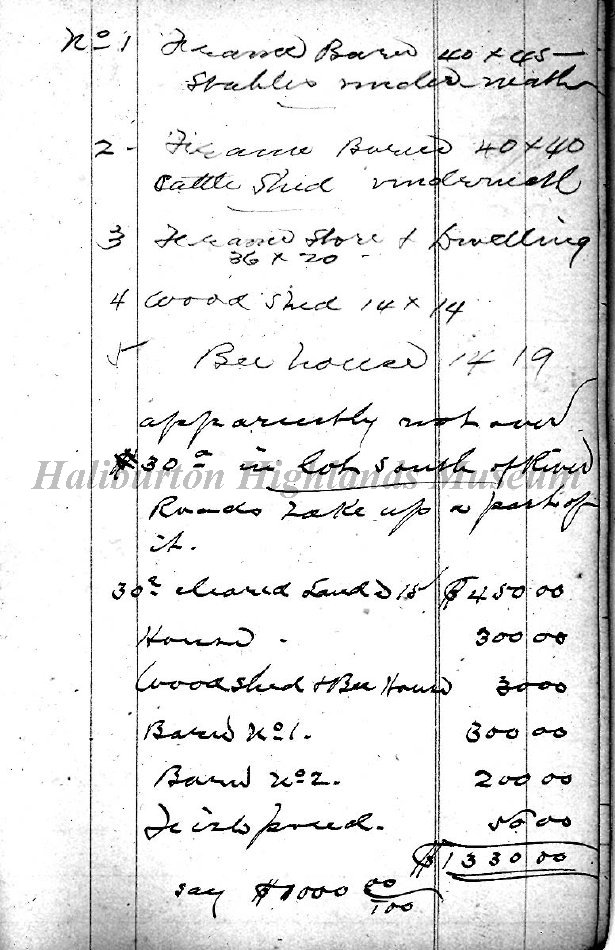 No 1 Frame Barn 40 x 45
Stables underneath
2 - Frame Barn 40 x 40
Cattle Shed underneath
3 Frame Store & Dwelling
36 x 20 -
4 Wood Shed 14 x 14
5 Bee house 14 19
apparently not over
30 a in lot South of River
Haliburton Highlands Museum
Roads take up a part of
it.
30 a cleared Land @ 15 $450 00
House - 300 00
Wood shed & Bee House 30 00
Barn No 1. 300 00
Barn No 2. 200 00
50 00
$1330 00
say $1000 00/100